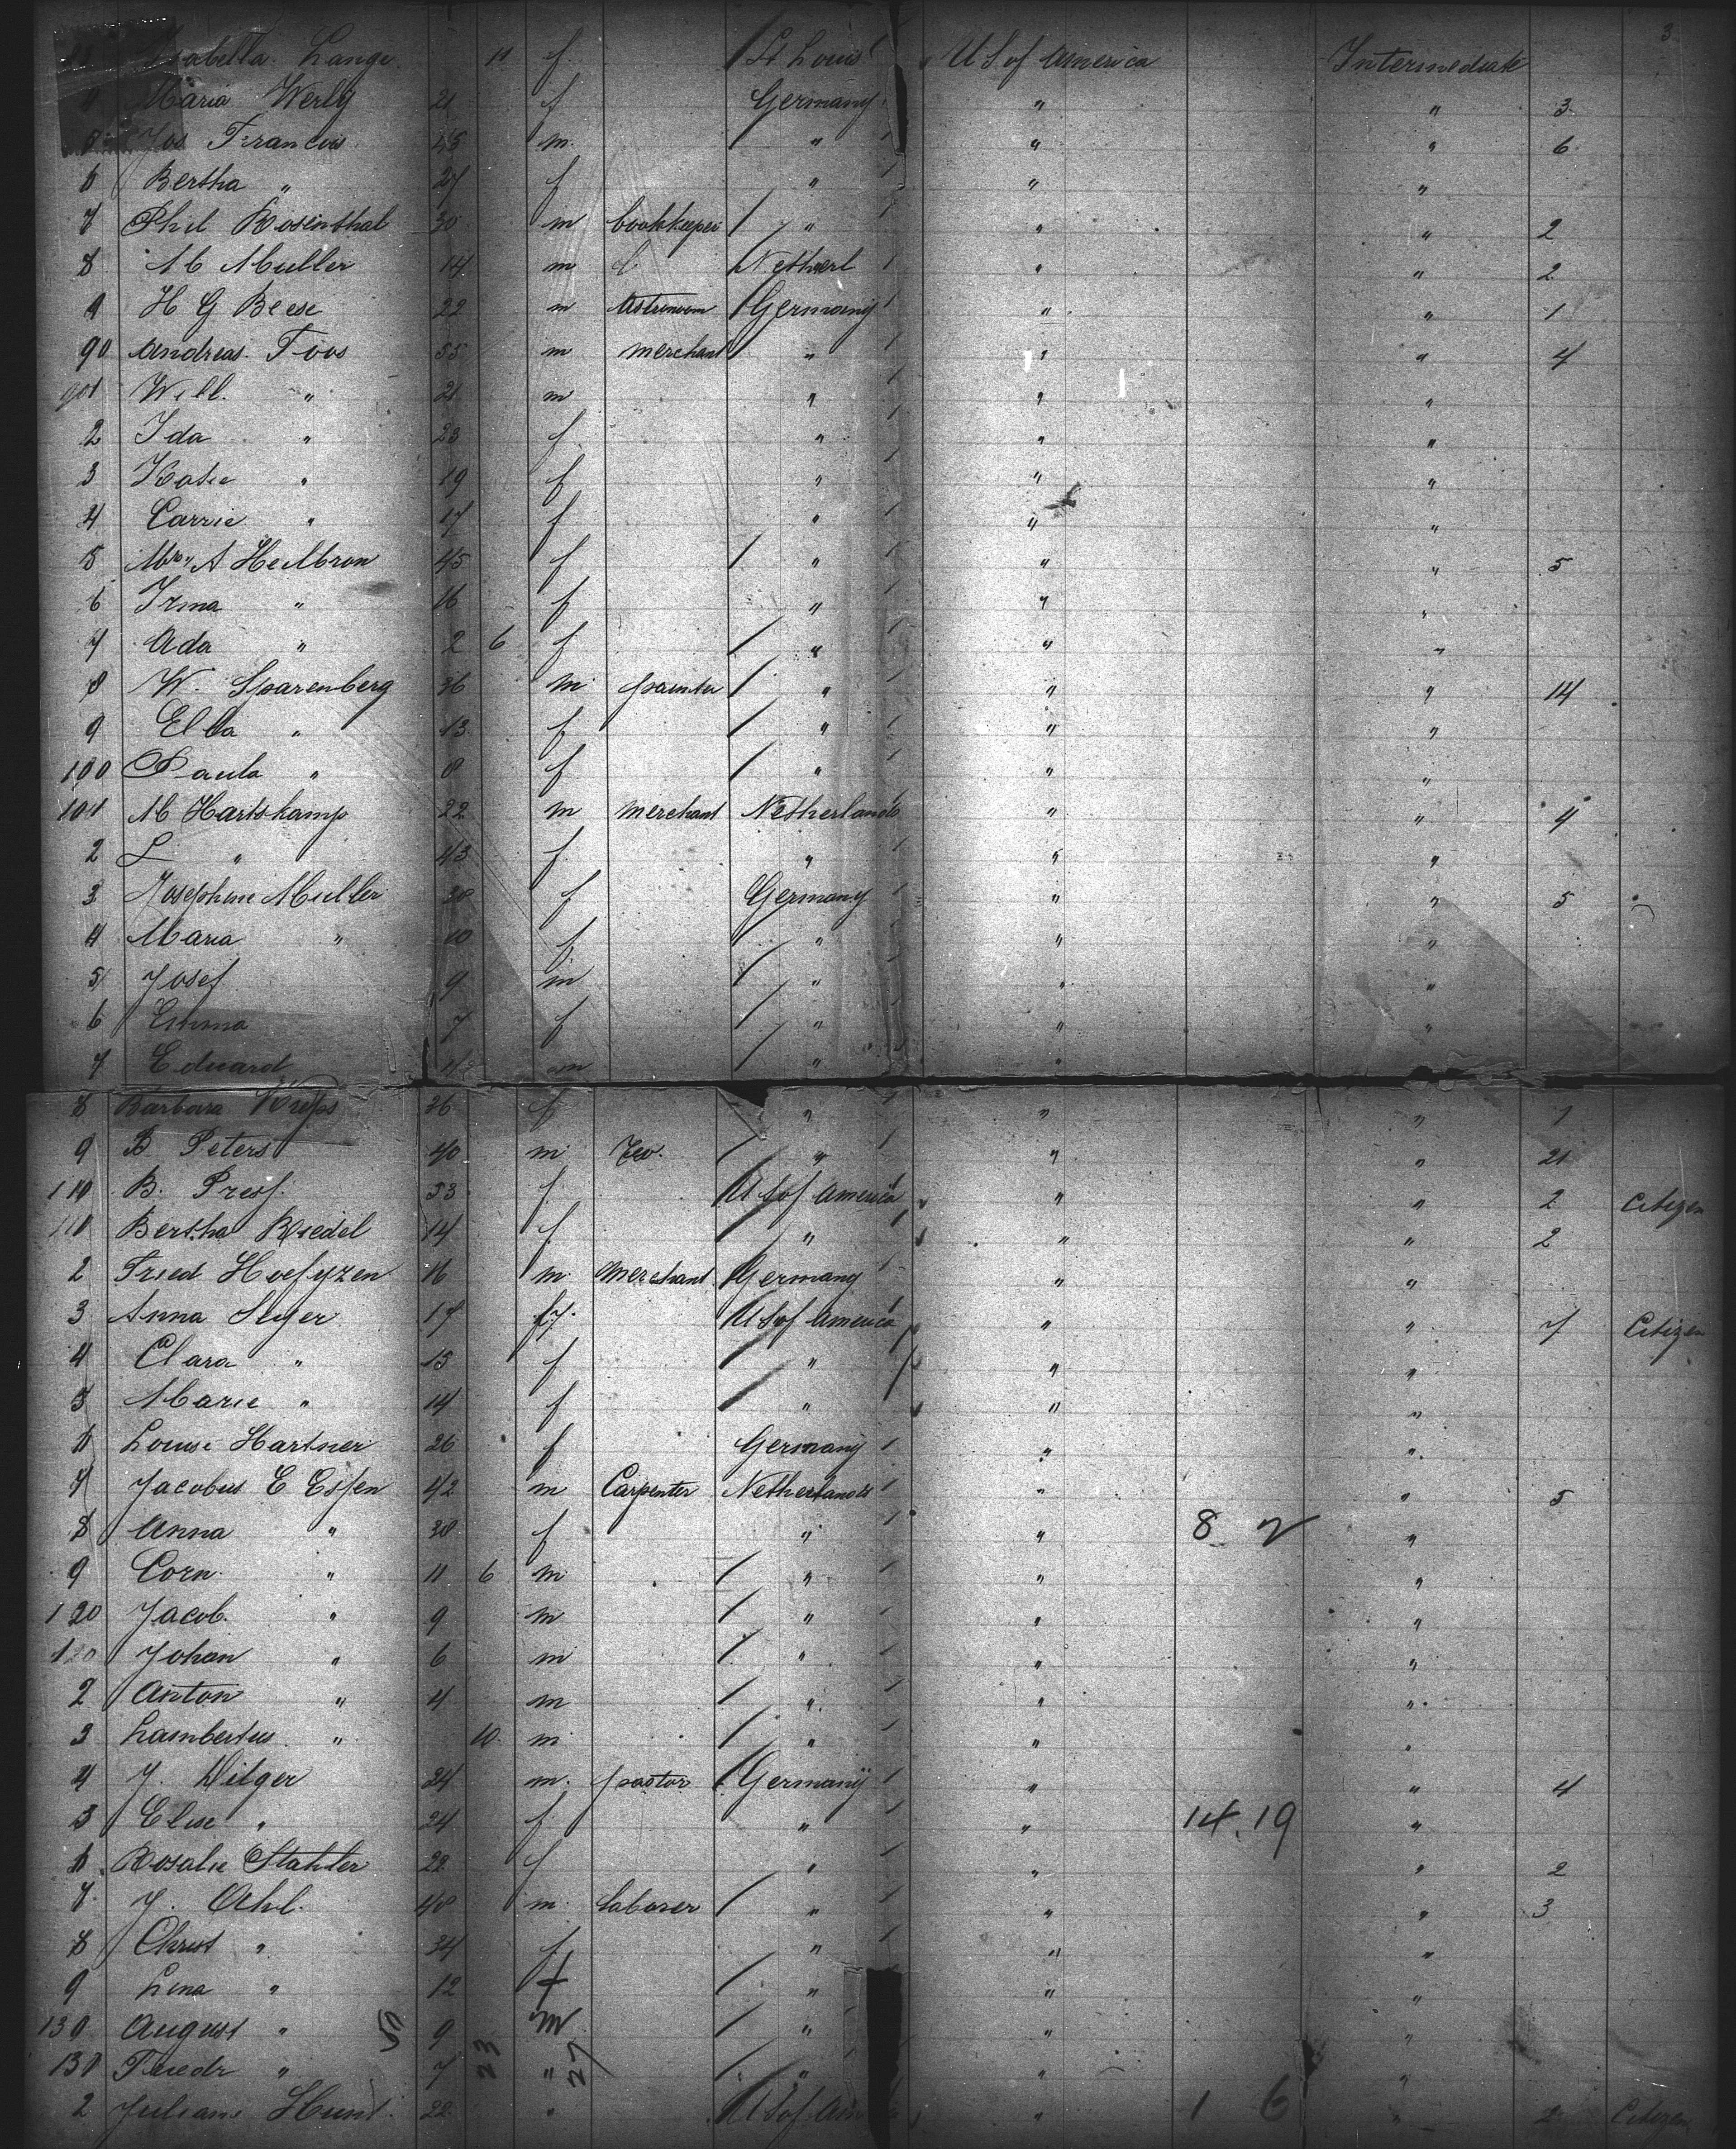 3
Isabella Lange 11 f St Louis U S of America Intermediate
Maria Werly 21 f Germany " " 3
Jos Francois 45 m " " " 6
6 Bertha " 27 f " " "
7 Phil Rosenthal 30 m bookkeeper " " " 2
8 M Muller 14 m Netherl " " 2
9 H G Beese 22 m Astronom Germany " " 1
90 Andreas Foos 55 m merchant " " " 4
901 Will. " 21 m " " "
2 Ida " 23 f " " "
3 Katie " 19 f " " "
4 Carrie " 17 f " " "
5 Mrs A Heilbron 45 f " " " 5
6 Irma " 16 f " " "
7 Ada " 2 6 f " " "
8 W. Sparenberg 36 m painter " " " 14
9 Ella " 13 f " " "
100 Paula " 8 f " " "
101 M Hartskamp 22 m merchant Netherlands " " 4
2 L " 43 f " " "
3 Josephine Muller 38 f Germany " " 5
4 Maria " 10 f " " "
5 Josef 9 m " " "
6 Emma 7 f " " "
7 Eduard 4 m " "
8 Barbara 36 f " " " 1
9 B Peters 40 m " " " 21
110 B. Press 53 f U S of America " " 2 Citizen
110 Bertha Riedel 14 f " " " 2
2 Fried Hoefyzen 16 m merchant Germany " "
3 Anna Seger 17 f U S of America " " 7 Citizen
4 Clara " 15 f " " "
5 Marie " 14 f " " "
6 Louise Hartner 26 f Germany " "
7 Jacobus E Essen 42 m Carpenter Netherlands " " 5
8 Anna " 38 f " " 8 2 "
9 Corn. " 11 6 m " " "
120 Jacob. " 9 m " " "
120 Johan " 6 m " " "
2 Anton " 4 m " " "
3 Lambertus " 10 m " " "
4 J. Dilger 24 m. pastor Germany " " 4
5 Elise " 24 f " " 14.19 "
6 Rosalie Stahler 22 f " " " 2
7 J. Oehl. 48 m. laborer " " " 3
8 Christ " 34 f " " "
9 Lena " 12 f " " "
130 August " 9 m " " "
130 Friedr " 7 " " " "
23 27
2 Juliane Hunt 22 " U S of Am " 1 6 " 2 Citizen